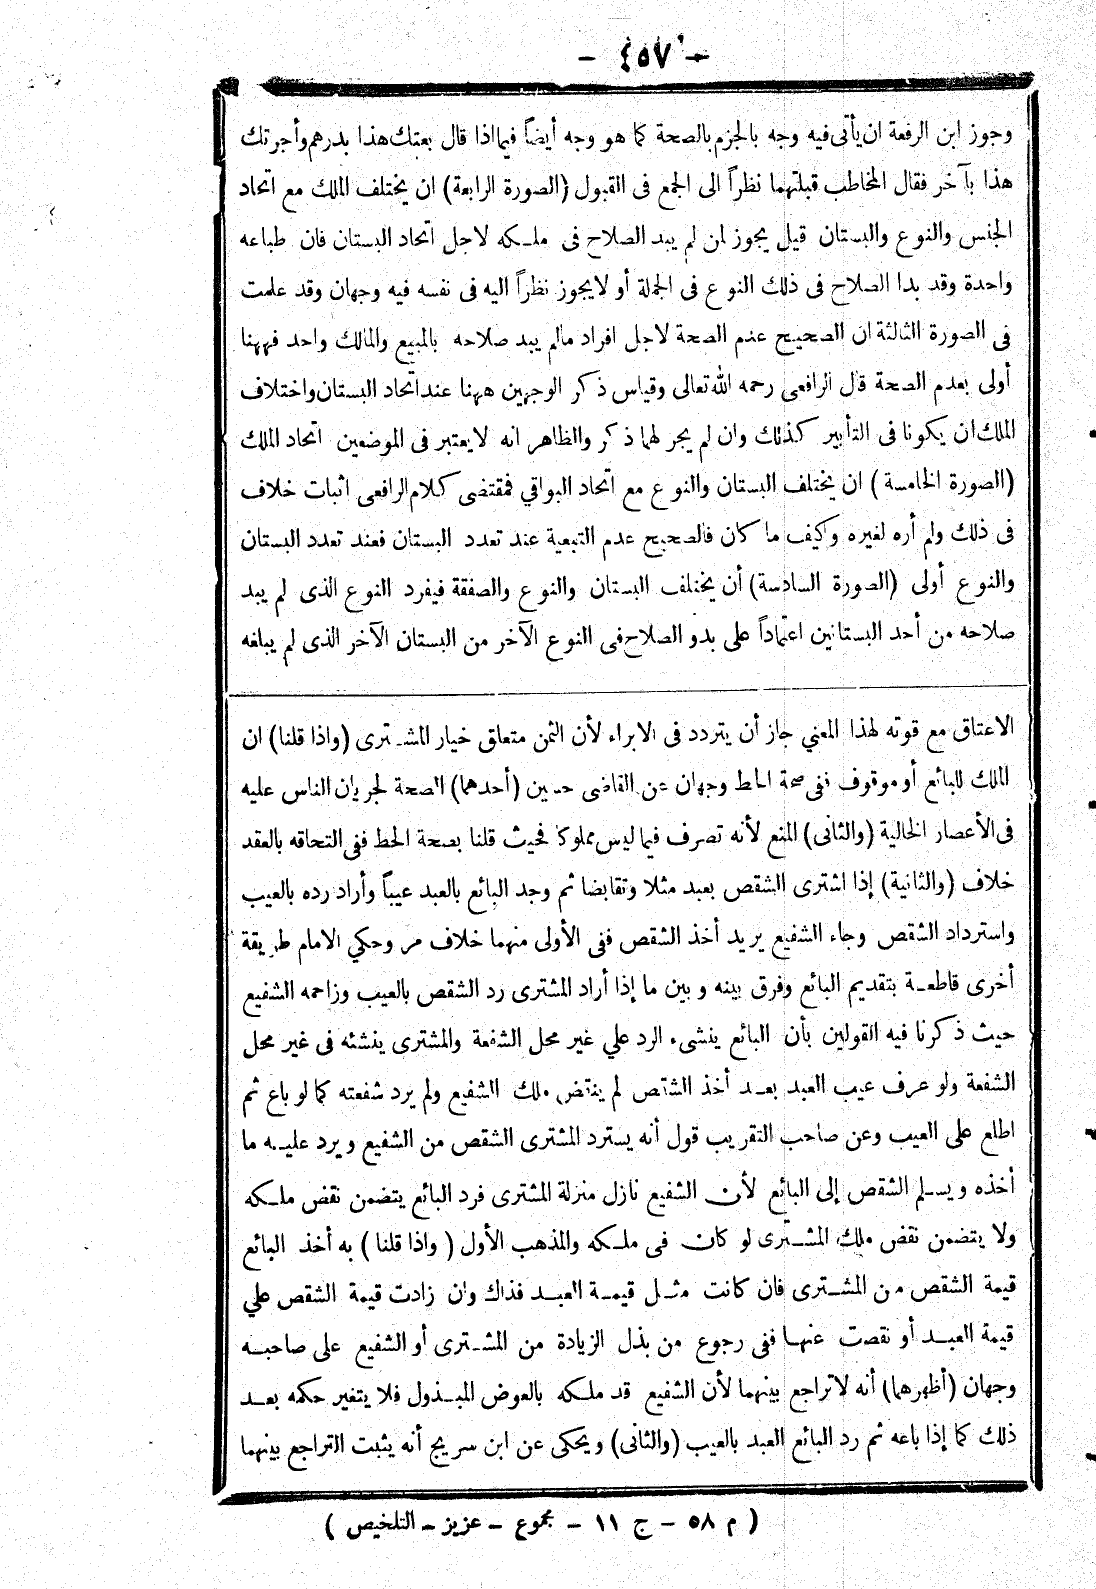 - ٤٥٧ -
وجوز ابن الرفعة ان يأتى فيه وجه بالجزم بالصحة كما هو وجه أيضاً فيما اذا قال بعتك هذا بدرهم وأجرتك
هذا بآخر فقال المخاطب قبلتهما نظراً الى الجمع فى القبول (الصورة الرابعة) ان يختلف الملك مع اتحاد
الجنس والنوع والبستان قيل يجوز لمن لم يبد الصلاح فى ملكه لاجل اتحاد البستان فان طباعه
واحدة وقد بدا الصلاح فى ذلك النوع فى الجملة أو لا يجوز نظراً اليه فى نفسه فيه وجهان وقد علمت
فى الصورة الثالثة ان الصحيح عدم الصحة لاجل افراد مالم يبد صلاحه بالمبيع والمالك واحد فههنا
أولى بعدم الصحة قال الرافعى رحمه الله تعالى وقياس ذكر الوجهين ههنا عند اتحاد البستان واختلاف
الملك ان يكونا فى التأبير كذلك وان لم يجر لهما ذكر والظاهر انه لا يعتبر فى الموضعين اتحاد الملك
(الصورة الخامسة) ان يختلف البستان والنوع مع اتحاد البواقي فمقتضى كلام الرافعى اثبات خلاف
فى ذلك ولم أره لغيره وكيف ما كان فالصحيح عدم التبعية عند تعدد البستان فعند تعدد البستان
والنوع أولى (الصورة السادسة) أن يختلف البستان والنوع والصفقة فيفرد النوع الذى لم يبد
صلاحه من أحد البستانين اعتماداً على بدو الصلاح فى النوع الآخر من البستان الآخر الذى لم يبلغه
الاعتاق مع قوته لهذا المعني جاز أن يتردد فى الابراء لأن الثمن متعلق خيار المشترى (واذا قلنا) ان
الملك للبائع أو موقوف ففى صحة الحط وجهان عن القاضى حسين (أحدهما) الصحة لجريان الناس عليه
فى الأعصار الخالية (والثانى) المنع لأنه تصرف فيما ليس مملوكا فحيث قلنا بصحة الحط ففى التحاقه بالعقد
خلاف (والثانية) إذا اشترى الشقص بعبد مثلا وتقابضا ثم وجد البائع بالعبد عيباً وأراد رده بالعيب
واسترداد الشقص وجاء الشفيع يريد أخذ الشقص ففى الأولى منهما خلاف مر وحكي الامام طريقة
أخرى قاطعة بتقديم البائع وفرق بينه وبين ما إذا أراد المشترى رد الشقص بالعيب وزاحمه الشفيع
حيث ذكرنا فيه القولين بأن البائع ينشىء الرد علي غير محل الشفعة والمشترى ينشئه فى غير محل
الشفعة ولو عرف عيب العبد بعد أخذ الشقص لم ينتقض ملك الشفيع ولم يرد شفعته كما لو باع ثم
اطلع على العيب وعن صاحب التقريب قول أنه يسترد المشترى الشقص من الشفيع ويرد عليه ما
أخذه ويسلم الشقص إلى البائع لأن الشفيع نازل منزلة المشترى فرد البائع يتضمن نقض ملكه
ولا يتضمن نقض ملك المشترى لو كان فى ملكه والمذهب الأول (واذا قلنا) به أخذ البائع
قيمة الشقص من المشترى فان كانت مثل قيمة العبد فذاك وان زادت قيمة الشقص علي
قيمة العبد أو نقصت عنها ففى رجوع من بذل الزيادة من المشترى أو الشفيع على صاحبه
وجهان (أظهرهما) أنه لا تراجع بينهما لأن الشفيع قد ملكه بالعوض المبذول فلا يتغير حكمه بعد
ذلك كما إذا باعه ثم رد البائع العبد بالعيب (والثانى) ويحكى عن ابن سريج أنه يثبت التراجع بينهما
( م ٥٨ - ج ١١ - مجموع - عزيز - التلخيص )